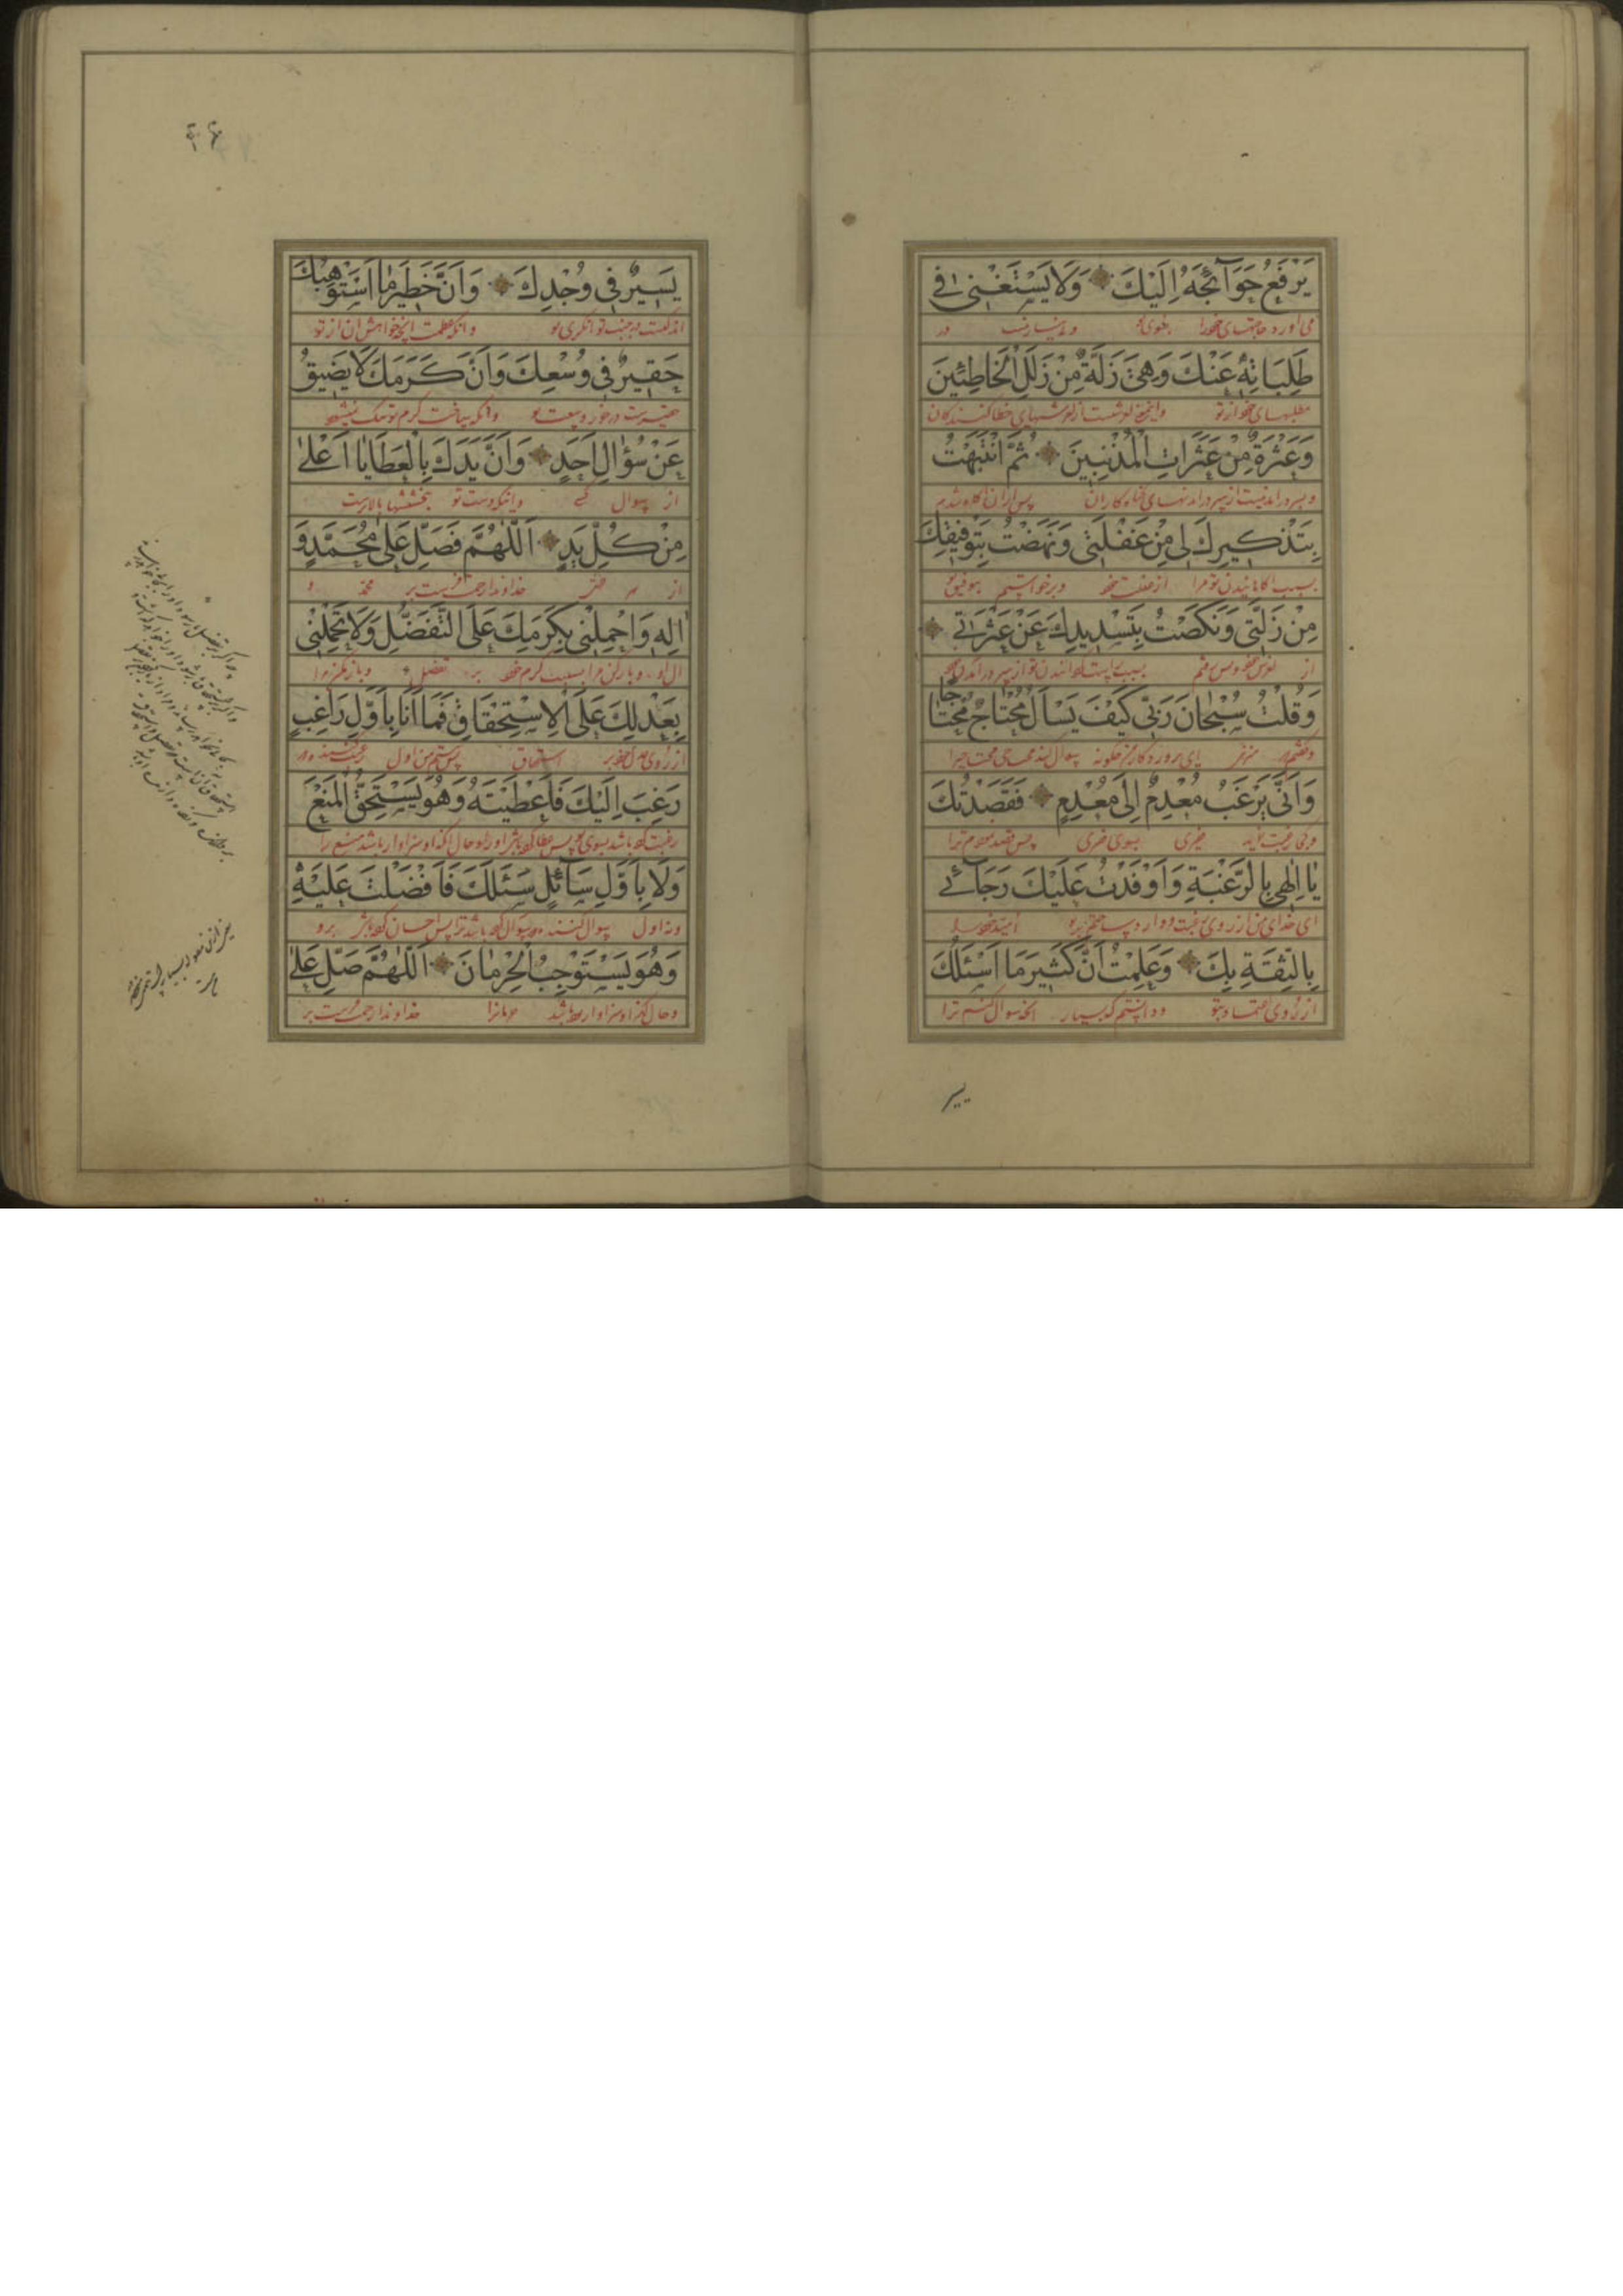 يَرْفَعُ حَوَآئِجَهُ اِلَيْكَ وَلَا يَسْتَغْنِى فِى
می‌آورد حاجتهای خود را بسوی تو و بی نیاز نیست در
طَلِبَاتِهِ عَنْكَ وَهِىَ زَلَّةٌ مِنْ زَلَلِ الْخَاطِئِينَ
مطلبهای خود از تو و این لغزشست از لغزشهای خطا کنندگان
وَعَثْرَةٌ مِنْ عَثَرَاتِ الْمُذْنِبِينَ ثُمَّ انْتَبَهْتُ
و بسر درآمدنیست از بسر درآمدنهای گناه کاران پس از آن آگاه شدم
بِتَذْكِيرِكَ لِى مِنْ غَفْلَتِى وَنَهَضْتُ بِتَوْفِيقِكَ
بسبب آگاهانیدن تو مرا از غفلت خود و برخواستم بتوفیق تو
مِنْ زَلَّتِى وَنَكَصْتُ بِتَسْدِيدِكَ عَنْ عَثْرَتِى
از لغزش خود
وَقُلْتُ سُبْحَانَ رَبِّى كَيْفَ يَسْاَلُ مُحْتَاجٌ مُحْتَاجًا
و گفتم پروردگار من چگونه سوال کند محتاجی محتاجی را
وَاَنّٰى يَرْغَبُ مُعْدِمٌ اِلٰى مُعْدِمٍ فَقَصَدْتُكَ
بسوی فقیری پس قصد کردم ترا
يَا اِلٰهِى بِالرَّغْبَةِ وَاَوْفَدْتُ عَلَيْكَ رَجَآئِى
ای خدای من از روی رغبت و وارد ساختم بر تو امید خود را
بِالثِّقَةِ بِكَ وَعَلِمْتُ اَنَّ كَثِيرَ مَا اَسْئَلُكَ
از روی اعتماد بتو و دانستم که بسیار آنچه سوال کنم ترا
يسير
۴۶
يَسِيرٌ فِى وُجْدِكَ وَاَنَّ خَطِيرَ مَا اَسْتَوْهِبُكَ
اندکست در جنب توانگری تو و آنکه عظمت آنچه خواهش آن از تو
حَقِيرٌ فِى وُسْعِكَ وَاَنَّ كَرَمَكَ لَا يَضِيقُ
حقیرست در خور وسعت تو و آنکه ساحت کرم تو تنگ نمیشود
عَنْ سُؤَالِ اَحَدٍ وَاَنَّ يَدَكَ بِالْعَطَايَا اَعْلٰى
از سوال کسی و آنکه دست تو ببخششها بالاترست
مِنْ كُلِّ يَدٍ اَللّٰهُمَّ فَصَلِّ عَلٰى مُحَمَّدٍ وَ
از هر دستی خداوندا رحمت فرست بر محمد و
اٰلِهِ وَاحْمِلْنِى بِكَرَمِكَ عَلَى التَّفَضُّلِ وَلَا تَحْمِلْنِى
آل او و بار کن مرا بسبب کرم خود بر تفضل و بار مکن مرا
بِعَدْلِكَ عَلَى الْاِسْتِحْقَاقِ فَمَا اَنَا بِاَوَّلِ رَاغِبٍ
از روی عدل خود بر استحقاق پس نیستم من اول رغبت کننده
رَغِبَ اِلَيْكَ فَاَعْطَيْتَهُ وَهُوَ يَسْتَحِقُّ الْمَنْعَ
رغبت کرده باشد بسوی تو پس عطا کرده باشی او را و حال آنکه او سزاوار باشد منع را
وَلَا بِاَوَّلِ سَآئِلٍ سَئَلَكَ فَاَفْضَلْتَ عَلَيْهِ
و نه اول سوال کننده که سوال کرده باشد ترا پس احسان کرده باشی برو
وَهُوَ يَسْتَوْجِبُ الْحِرْمَانَ اَللّٰهُمَّ صَلِّ عَلٰى
و حال آنکه او سزاوار باشد حرمانرا خداوندا رحمت فرست بر